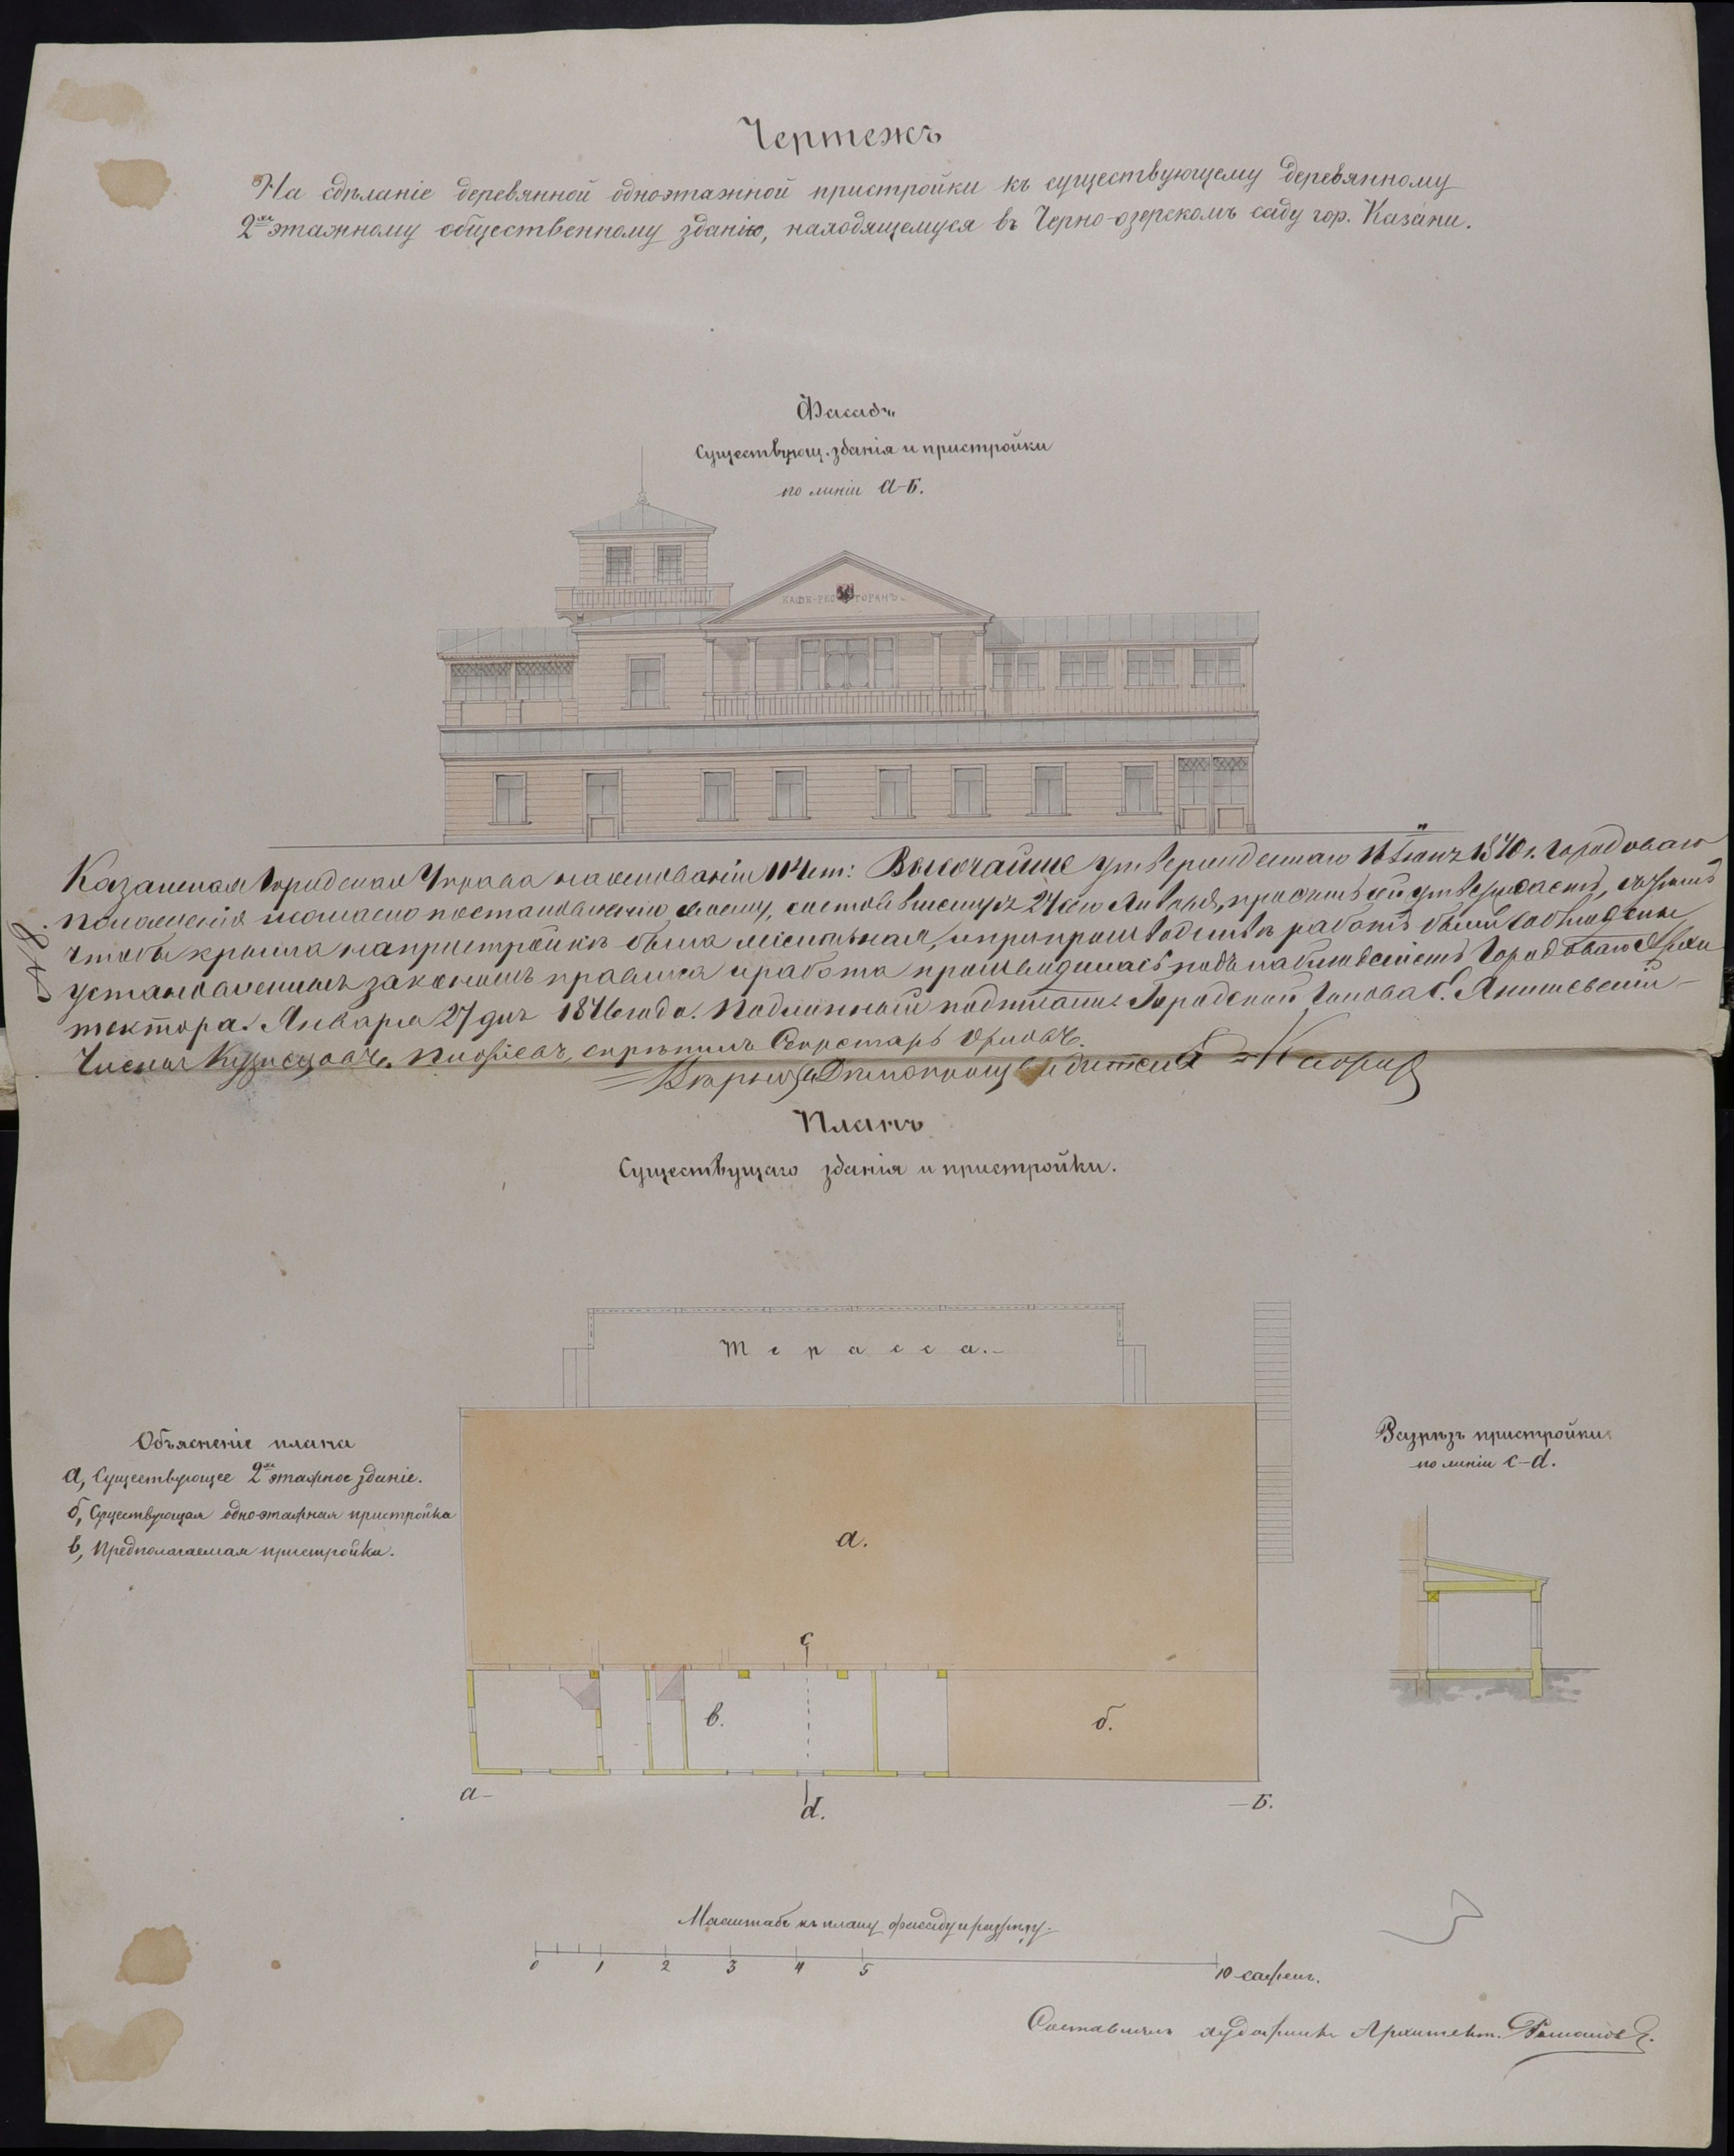 Чертежъ
На сдѣланіе деревянной одноэтажной пристройки къ существующему деревянному
2хъ этажному общественному зданію, находящемуся въ Черно-озерскомъ саду гор. Казани.
Фасадъ
Существующ. зданія и пристройки
по линіи а-Б.
КАФЕ-РЕСТОРАНЪ.
Казанская Городская Управа на основаніи 114 ст: Высочайше утвержденнаго 16 Іюня 1870 г. Городоваго
положенія и согласно постановленію своему, состоявшемуся 24 сего Января, проэктъ сей утверждаетъ, съ тѣмъ
чтобы крыша на пристройкѣ была желѣзная, и при производствѣ работъ были соблюдены
установленныя закономъ правила и работа производилась подъ наблюденіемъ Городоваго Архи
тектора. Января 27 дня 1876 года. Подлинный подписали: Городской Голова Э. Янишевскій
Члены Кузнецовъ, скрѣпилъ Секретарь Орловъ.
Вѣрно: Дѣлопроизводитель
Планъ
Существущаго зданія и пристройки.
Терасса.
Объясненіе плана
а, Существующее 2хъ этажное зданіе.
б, Существующая одно-этажная пристройка
в, Предполагаемая пристройка.
Разрѣзъ пристройки
по линіи c-d.
а.
c
в.
б.
а-
d.
-Б.
Масштабъ къ плану фасаду и разрѣзу.
0 1 2 3 4 5 10 сажень.
Составилъ художникъ Архитект. Романовъ.